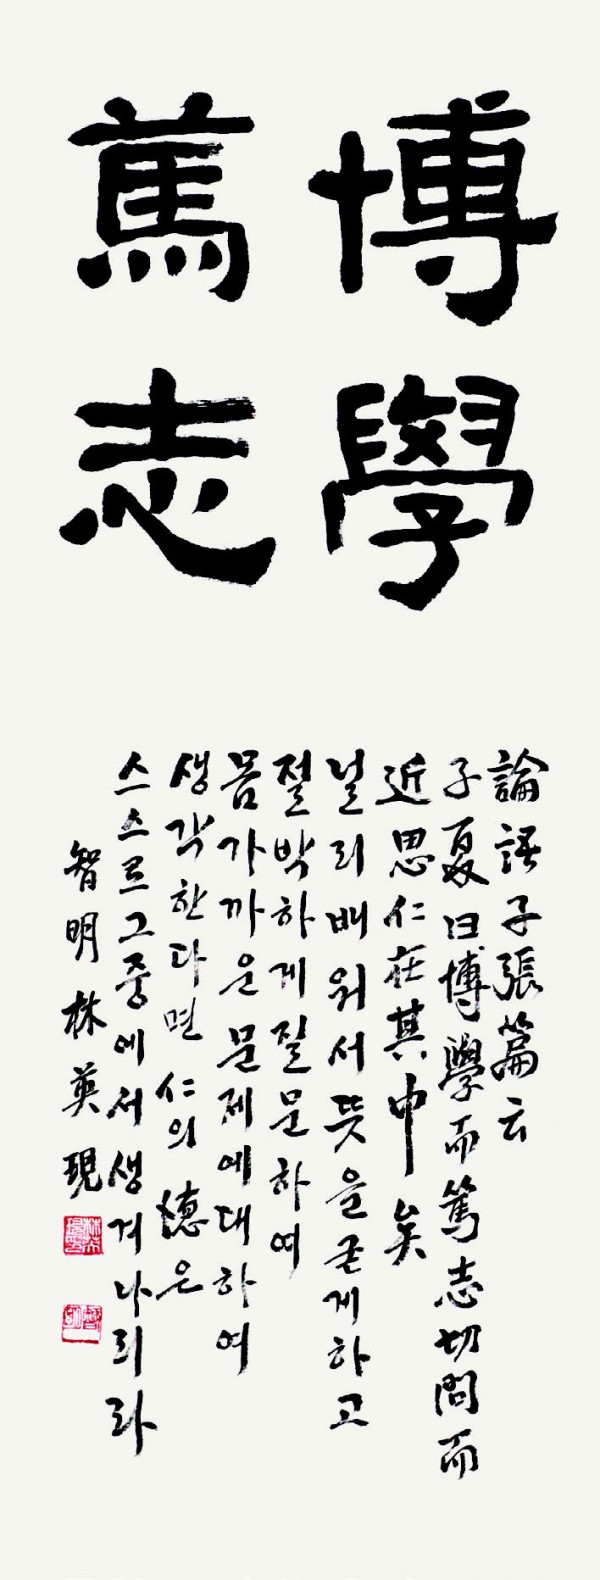 博學
篤志
論語子張篇云
子夏曰博學而篤志切問而
近思仁在其中矣
널리배워서뜻을굳게하고
절박하게질문하여
몸가까운문제에대하여
생각한다면仁의德은
스스로그중에서생겨나리라
智明林英現